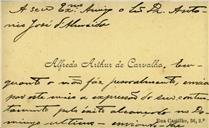 A seu Exmo. Amigo o Sr. Dr. Anto-
nio José d'Almeida
Alfredo Arthur de Carvalho, En-
quanto o não faz pessoalmente, envia
por este meio a expressão do seu conten-
tamento pelo exito alcançado no Do-
mingo ultimo
Rua Castilho, 36, 2.º